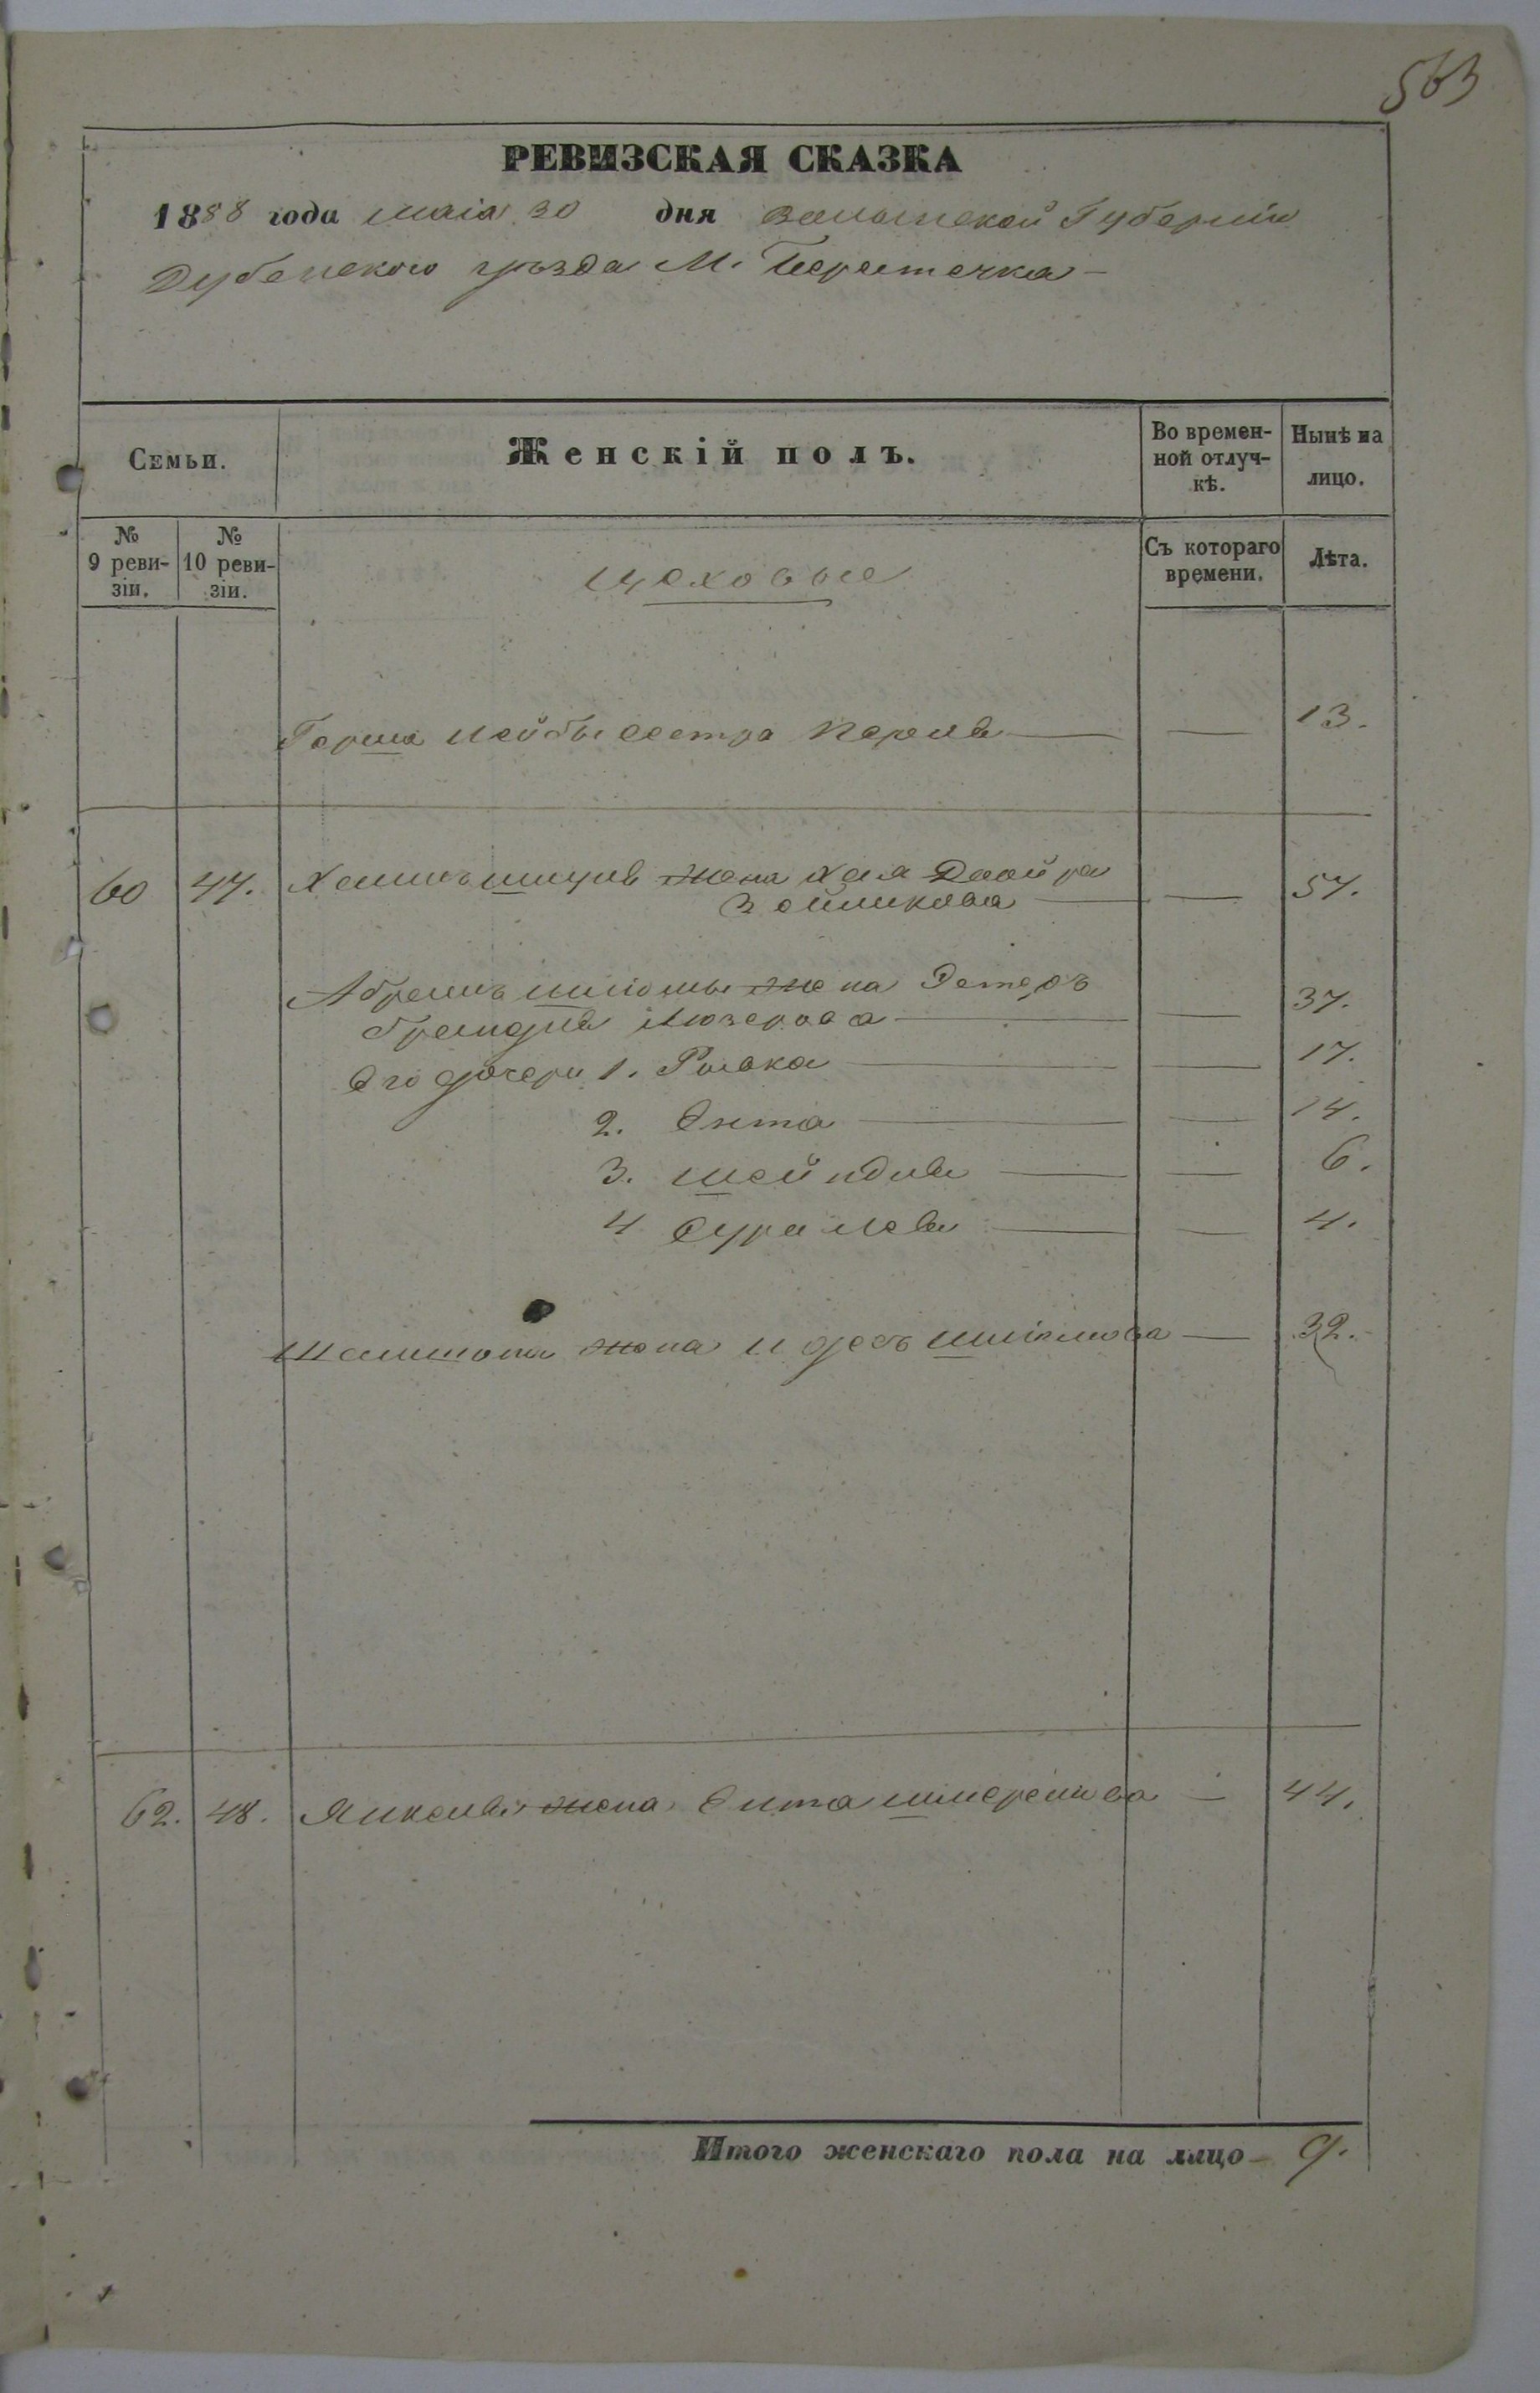 563
РЕВИЗСКАЯ СКАЗКА
1858 года маія 30 дня Волынской Губерніи
Дубенского уѣзда М. Берестечка
Семьи.
Женскій полъ.
Во времен-
ной отлуч-
кѣ.
Нынѣ на
лицо.
№
9 реви-
зіи.
№
10 реви-
зіи.
Цеховые
Съ котораго
времени.
Лѣта.
Герша Лейбы сестра Перля — — 13.
60 47. Хаима жена Хая Двойра
Зейликова — — 57.
Абрама Шліомы жена Эстеръ
Люзерова — — 37.
Его дочери 1. Ривка — — 17.
2. Ента — — 14.
3. Шейндля — — 6.
4 Сура Лея — — 4.
жена Идесъ Шліомова — 32.
62. 48. Янкеля жена Ента Шмерелева — 44.
Итого женскаго пола на лицо — 9.